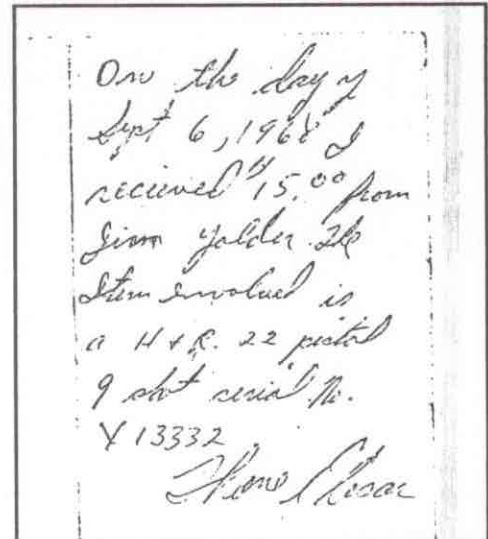 On the day of
Sept 6, 1968 I
recieved $15.00 from
Jim Yolder. The
Item involved is
a H & R. 22 pistol
9 shot serial No.
Y 13332